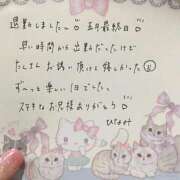 退勤しました〜♡ 五月最終日♡
早い時間から出勤だったけど
たくさんお誘い頂けて嬉しかった
ずーっと楽しい1日でした。
ステキなお兄様ありがとう♡
ひなみ